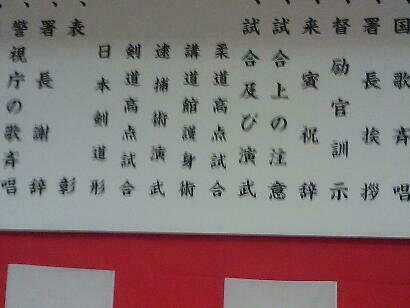 国歌斉唱
、署長挨拶
、督励官訓示
、来賓祝辞
、試合上の注意
、試合及び演武
柔道高点試合
講道館護身術
逮捕術演武
剣道高点試合
日本剣道形
、表彰
、署長謝辞
、警視庁の歌斉唱